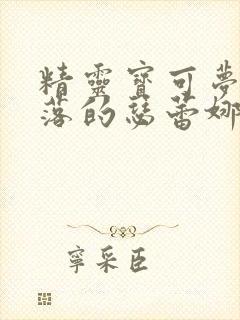 精靈寶可夢
落的瑟蕾娜
寧采臣